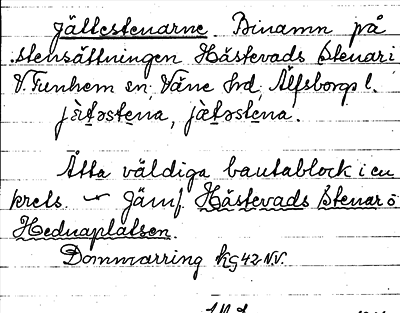 Jättestenarne. Binamn på
stensättningen Hästevads Stenar i
V. Tunhem sn, Väne hd, Älfsborgs l.
jɛ̀t̰əstena, jæ̀t̰əstena.
Åtta väldiga bautablock i en
krets. Jämf. Hästevads Stenar o
Hednaplatsen.
Dommarring kg 42 NV.